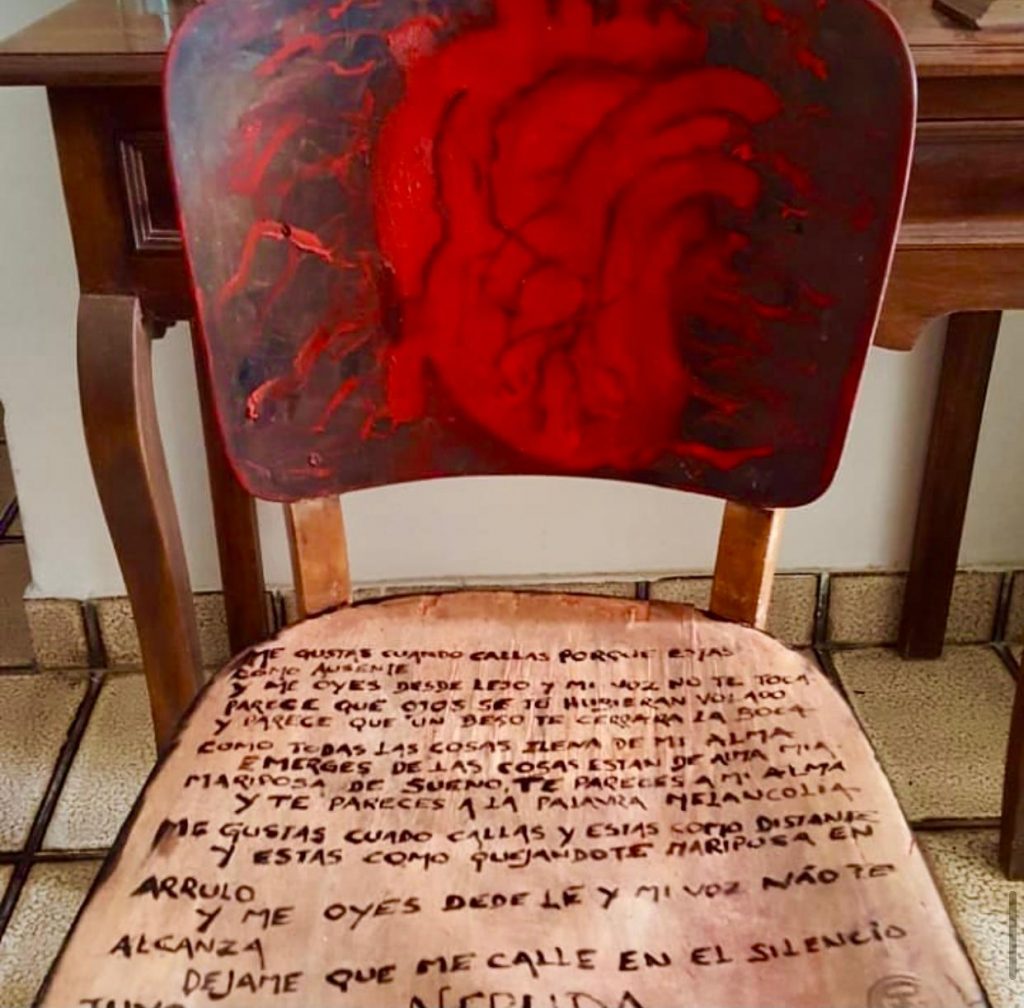 ME GUSTAS CUANDO CALLAS PORQUE ESTAS
COMO AUSENTE
Y ME OYES DESDE LEJO Y MI VOZ NO TE TOCA
PARECE QUE OJOS SE TU HUBIERAN VOLADO
Y PARECE QUE UN BESO TE CERRARA LA BOCA
COMO TODAS LAS COSAS LLENA DE MI ALMA
EMERGES DE LAS COSAS ESTAN DE ALMA MIA.
MARIPOSA DE SUENO, TE PARECES A MI ALMA
Y TE PARECES A LA PALAVRA MELANCOLIA
ME GUSTAS CUADO CALLAS Y ESTAS COMO DISTANTE
Y ESTAS COMO QUEJANDOTE MARIPOSA EN
ARRULO
Y ME OYES DEDE LE Y MI VOZ NÃO TE
ALCANZA
DEJAME QUE ME CALLE EN EL SILENCIO
NERUDA